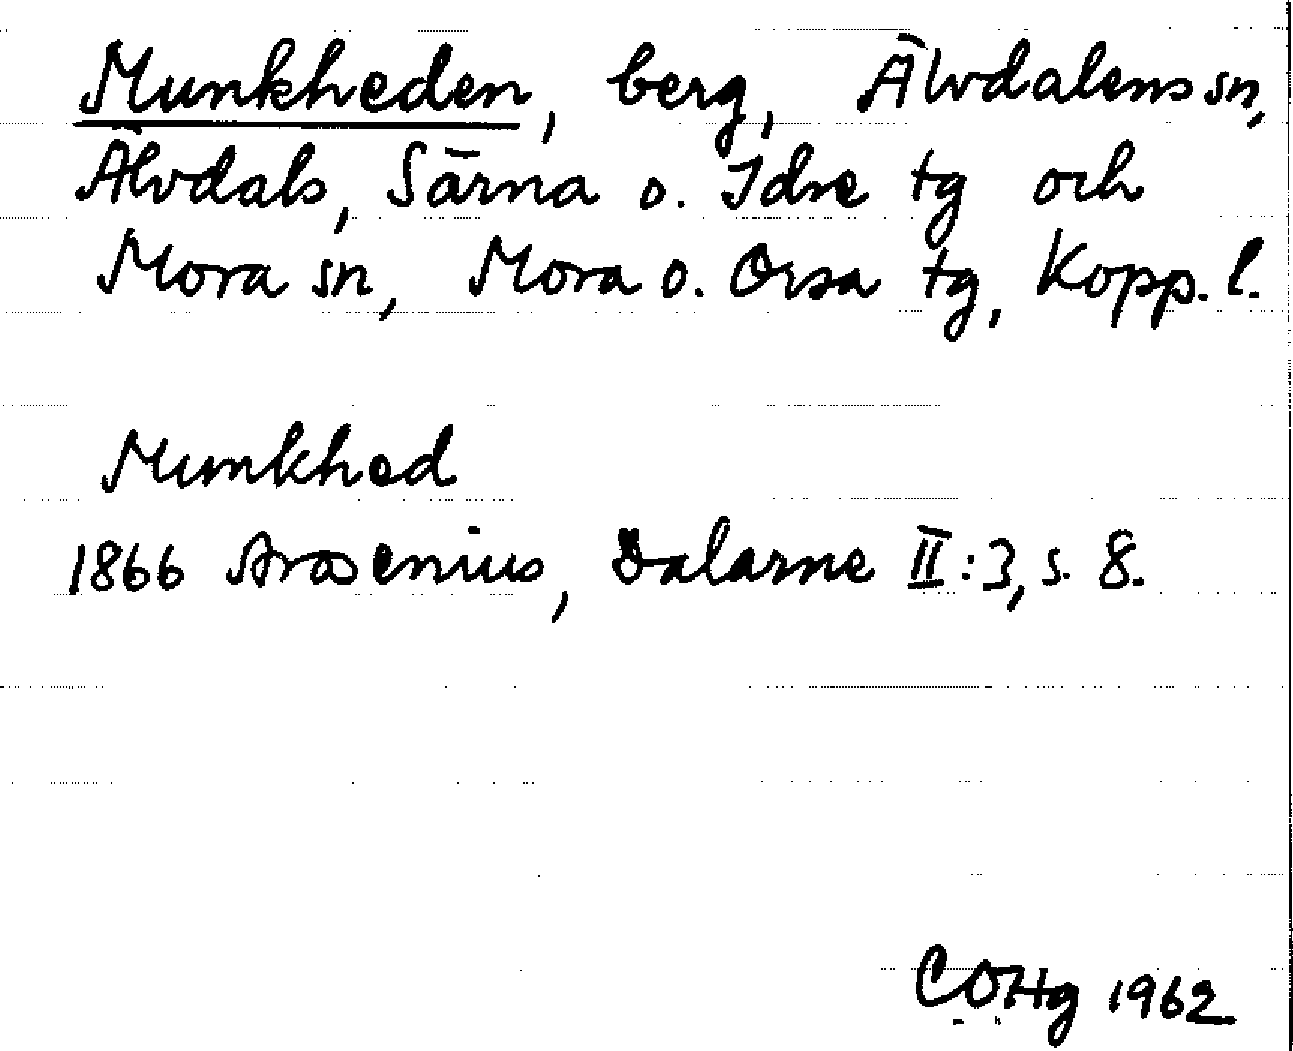 Munkheden, berg, Älvdalens sn,
Älvdals, Särna o. Idre tg och
Mora sn, Mora o. Orsa tg, Kopp. l.
Munkhed
1866 Arosenius, Dalarne II:3, s. 8.
COHg 1962